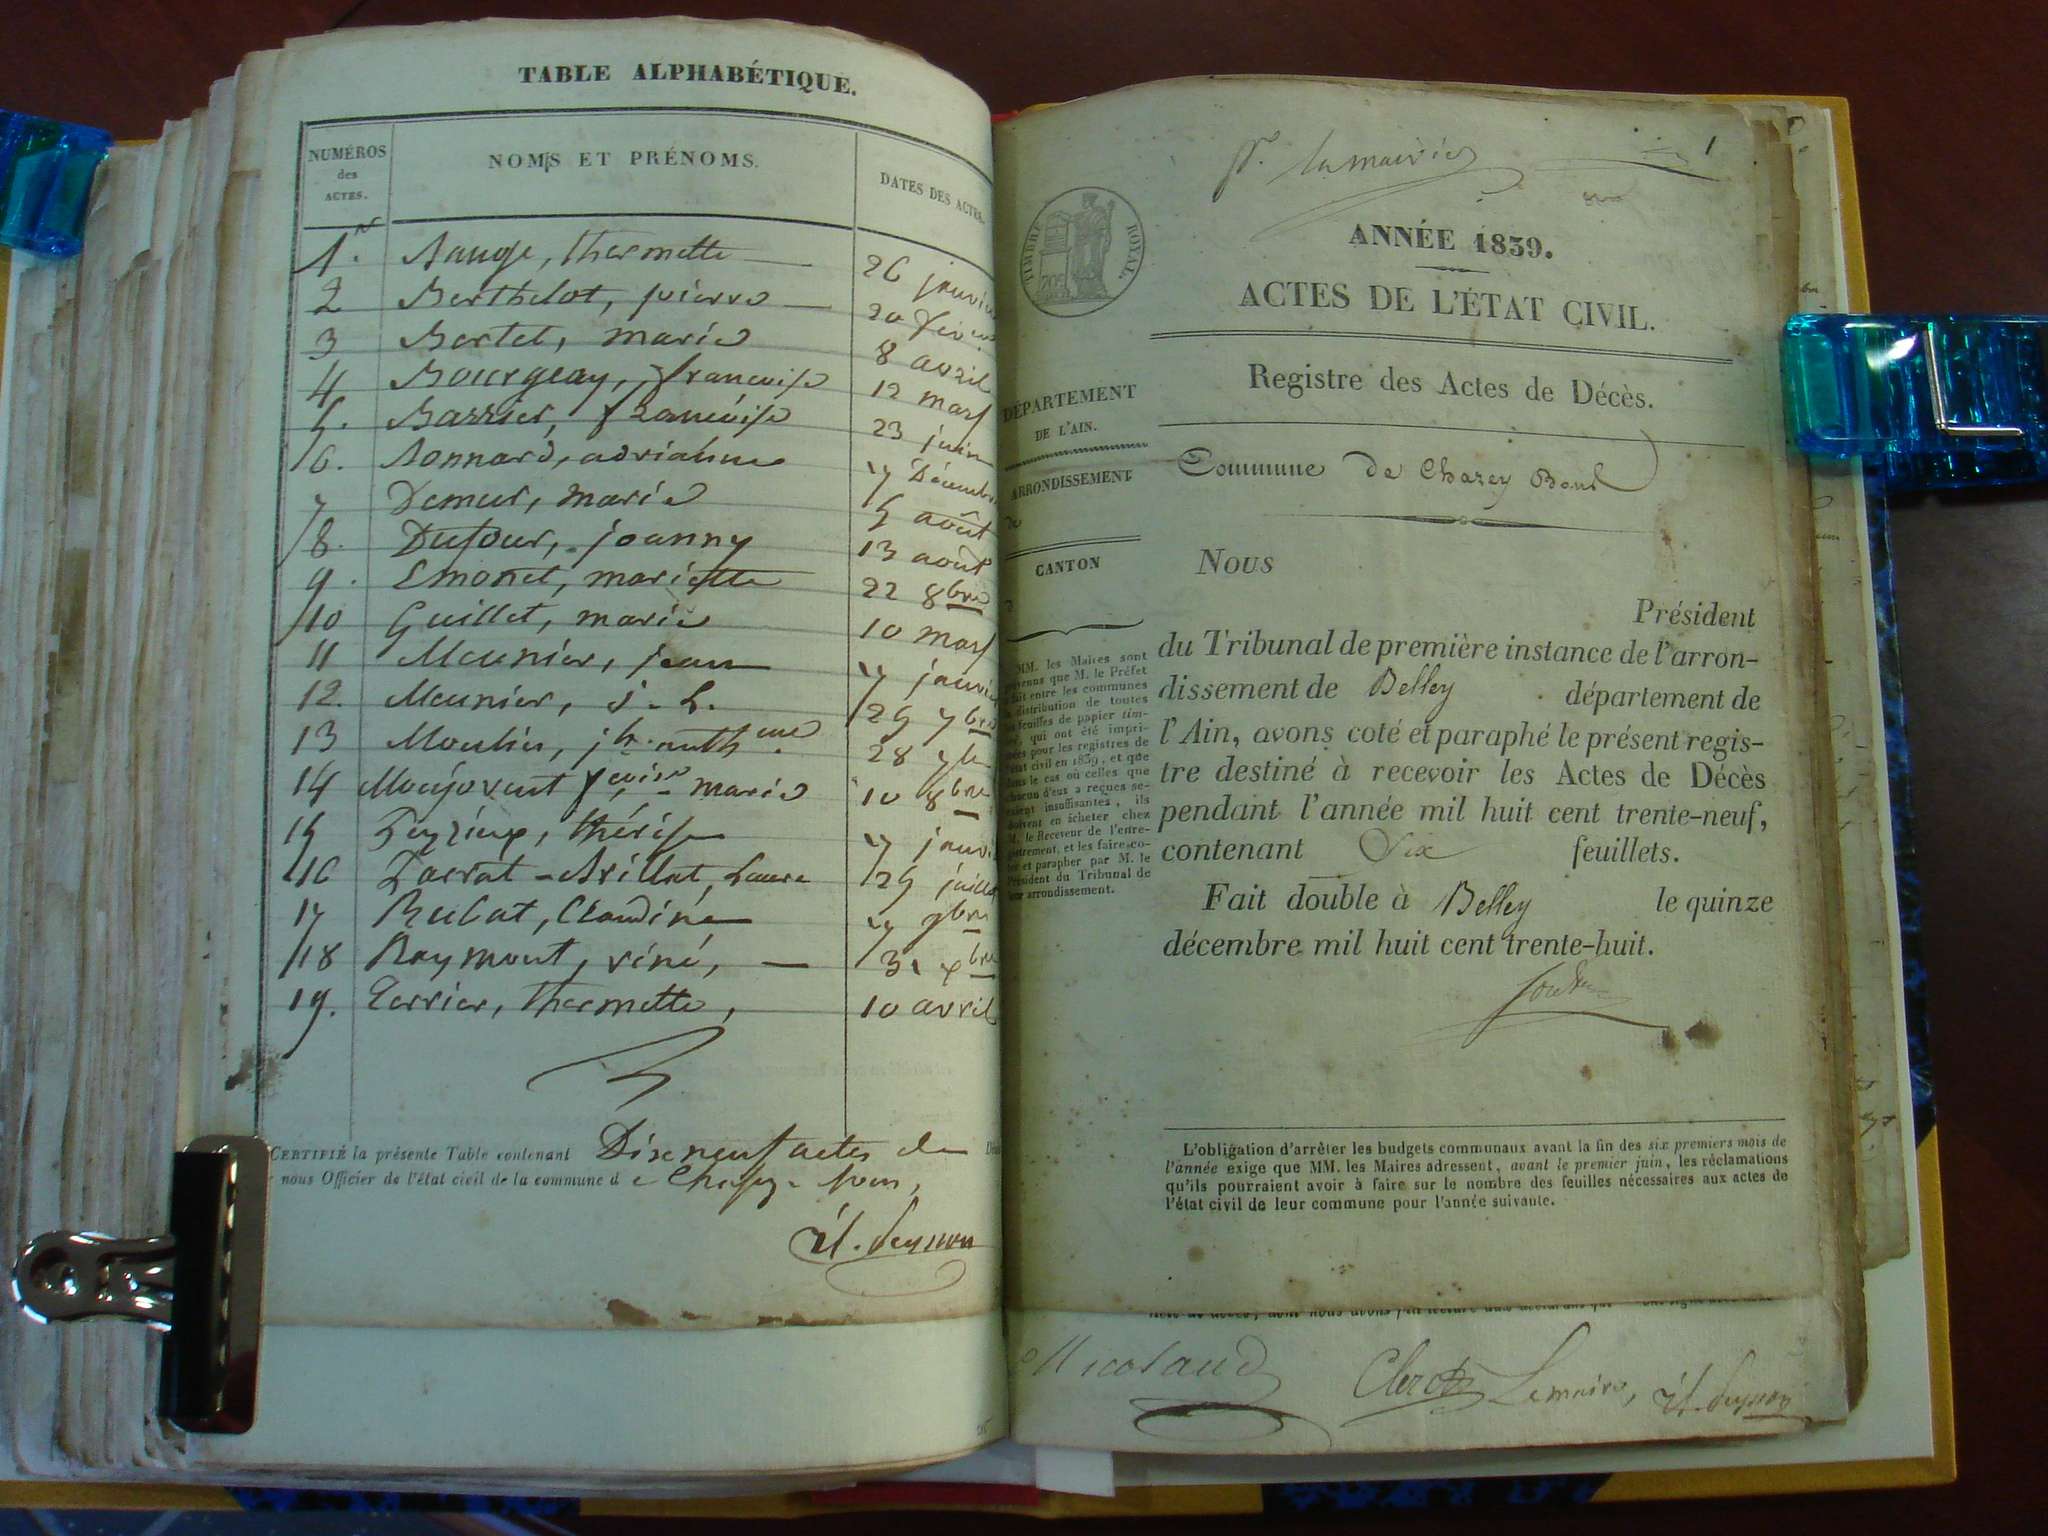 TABLE ALPHABÉTIQUE.
NUMÉROS des ACTES.
NOMS ET PRÉNOMS.
DATES DES ACTES.
1. thermette 26 janvier
2 Berthelot, pierre 20
3 Bertet, marie 8 avril
4 Bourgeay, francoise 12 mars
5. Barrier, francoise 23 juin
6. Bonnard, adrianne 7 Décembre
7 Demeur, marie 5 août
8. Dufour, joanny 13 août
9. Emonet, mariette 22 8bre
10 Guillet, marie 10 mars
11 Meunier, jean 7 janvier
12. Meunier, j. L. 25 7bre
13 Moulin, jh. anthme 28
14 Monjovent fçoise marie 10 8bre
15 thérèse 7 janvi
16 Laure 25 juillet
17 Rubat, Claudine 7
18 Raymont, réné, 31 xbre
19. Perrier, thermette, 10 avril
CERTIFIÉ la présente Table contenant Dix neuf actes de
nous Officier de l'état civil de la commune de Chazey-
pr. la mairie
1
TIMBRE ROYAL
ANNÉE 1839.
ACTES DE L'ÉTAT CIVIL.
Registre des Actes de Décès.
Commune de Chazey Bons
DÉPARTEMENT
DE L'AIN.
ARRONDISSEMENT
de
CANTON
MM. les Maires sont
prévenus que M. le Préfet
fait entre les communes
distribution de toutes
les feuilles de papier tim-
bré, qui ont été impri-
mées pour les registres de
l'état civil en 1839, et que
dans le cas où celles que
chacun d'eux a reçues se-
raient insuffisantes, ils
doivent en acheter chez
M. le Receveur de l'enre-
gistrement, et les faire co-
ter et parapher par M. le
Président du Tribunal de
leur arrondissement.
Nous
Président
du Tribunal de première instance de l'arron-
dissement de Belley département de
l'Ain, avons coté et paraphé le présent regis-
tre destiné à recevoir les Actes de Décès
pendant l'année mil huit cent trente-neuf,
contenant Six feuillets.
Fait double à Belley le quinze
décembre mil huit cent trente-huit.
L'obligation d'arrêter les budgets communaux avant la fin des six premiers mois de
l'année exige que MM. les Maires adressent, avant le premier juin, les réclamations
qu'ils pourraient avoir à faire sur le nombre des feuilles nécessaires aux actes de
l'état civil de leur commune pour l'année suivante.
Nicolaud Clerc Lemaire,